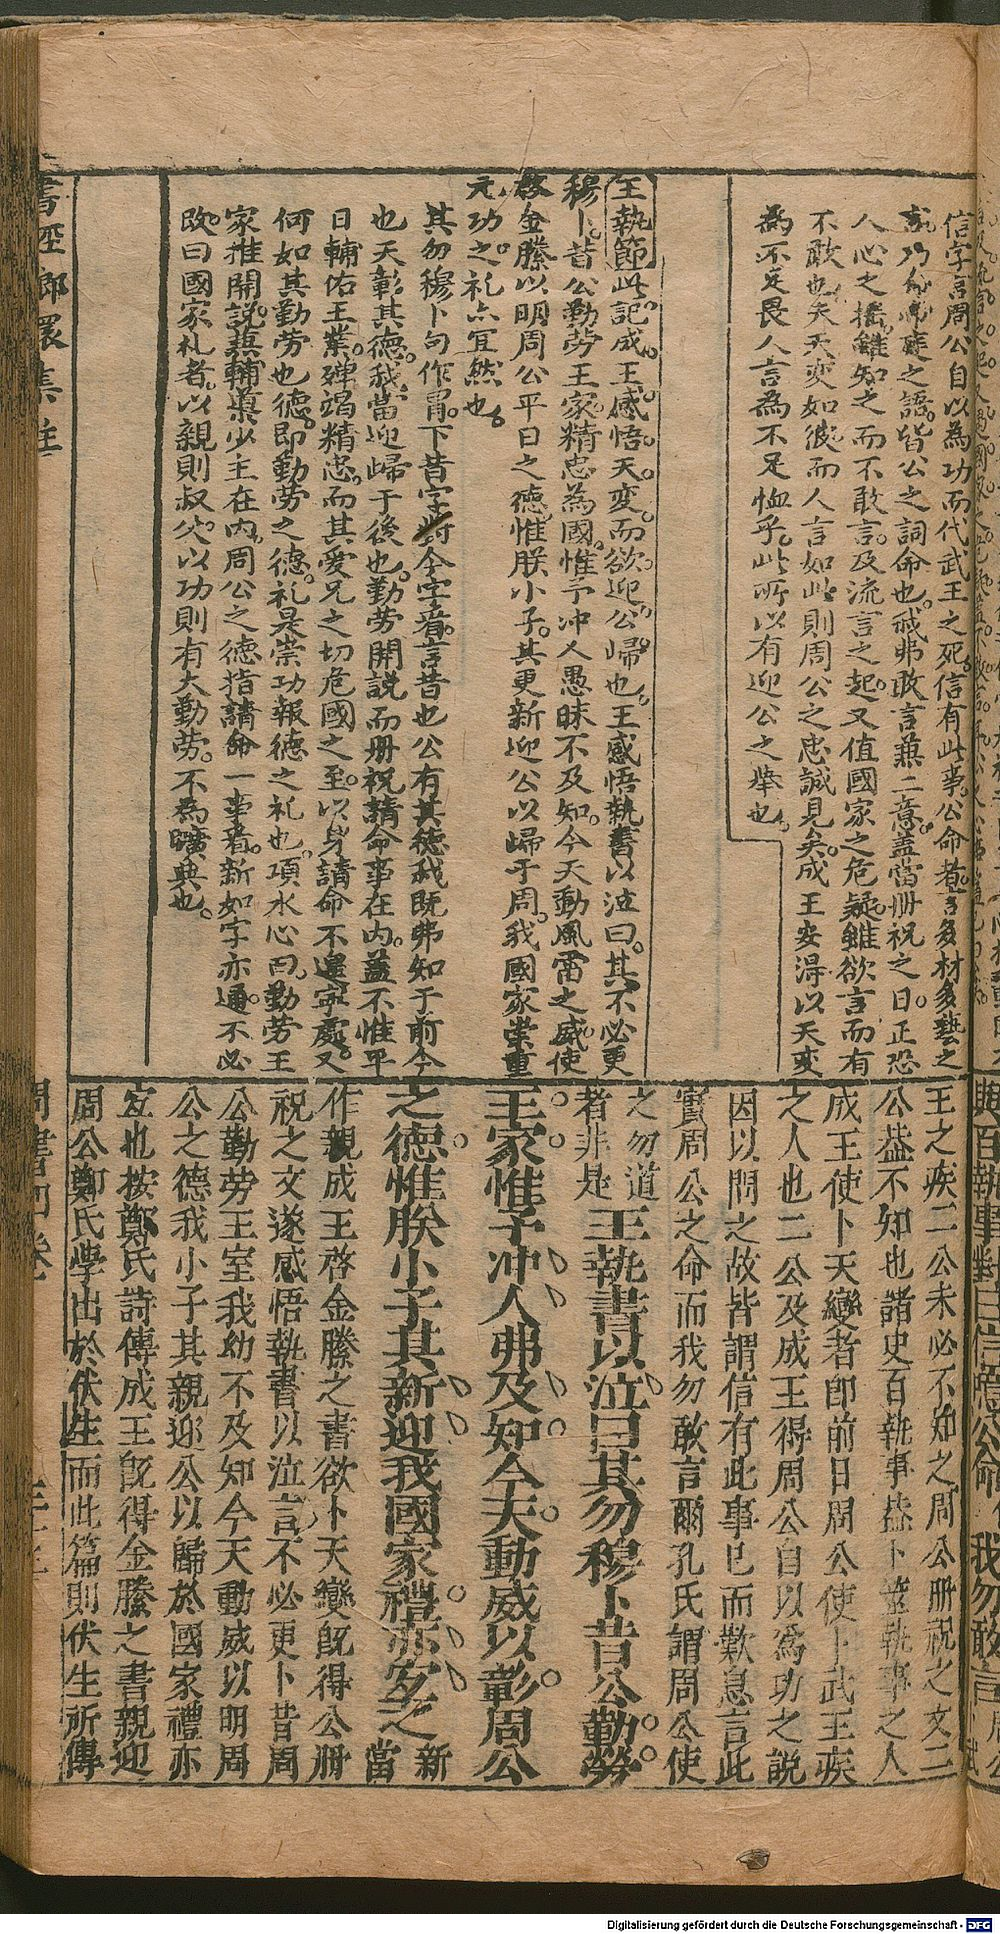 信字言周公自以為功而代武王之死信有此事公命者言多材多藝之
言乃命帝庭之語皆公之詞命也我弗敢言兼二意蓋當冊祝之日正恐
人心之搖雖知之而不敢言及流言之起又值國家之危疑雖欲言而有
不敢也夫天變如彼而人言如此則周公之忠誠見矣成王安得以天变
為不足畏人言為不足恤乎此所以有迎公之舉也
王執節此記成王感悟天变而欲迎公歸也王感悟執書以泣曰其不必更
穆卜昔公勤劳王家精忠為國惟予冲人愚昧不及知今天動風雷之威使
啓金縢以明周公平日之德惟朕小子其更新迎公以歸于周我國家崇重
元功之礼亦宜然也
其勿穆卜句作冐下昔字將今字看言昔也公有其德我既弗知于前今
也天彰其德我當迎歸于後也勤劳開説而冊祝請命事在内蓋不惟平
日輔佑王業殫竭精忠而其愛兄之切危國之至以身請命不遑寧處又
何如其勤劳也德即勤劳之德礼是崇功報德之礼也項水心曰勤劳王
家推開説兼輔翼少主在内周公之德指請命一事看新如字亦通不必
改曰國家礼者以親則叔父以功則有大勤劳不為曠典也
王之疾二公未必不知之周公冊祝之文二
公葢不知也諸史百執事葢卜筮執事之人
成王使卜天變者即前日周公使卜武王疾
之人也二公及成王得周公自以為功之説
因以問之故皆謂信有此事已而歎息言此
實周公之命而我勿敢言爾孔氏謂周公使
之勿道
者非是
王執書以泣曰其勿穆卜昔公勤勞
王家惟予冲人弗及知今天動威以彰周公
之德惟朕小子其新迎我國家禮亦宐之
新
當
作親成王啓金縢之書欲卜天變旣得公冊
祝之文遂感悟執書以泣言不必更卜昔周
公勤勞王室我幼不及知今天動威以明周
公之德我小子其親迎公以歸於國家禮亦
宐也按鄭氏詩傳成王旣得金縢之書親迎
周公鄭氏學出於伏生而此篇則伏生所傳
書經郎環集註
周書四卷
Digitalisierung gefördert durch die Deutsche Forschungsgemeinschaft - DFG